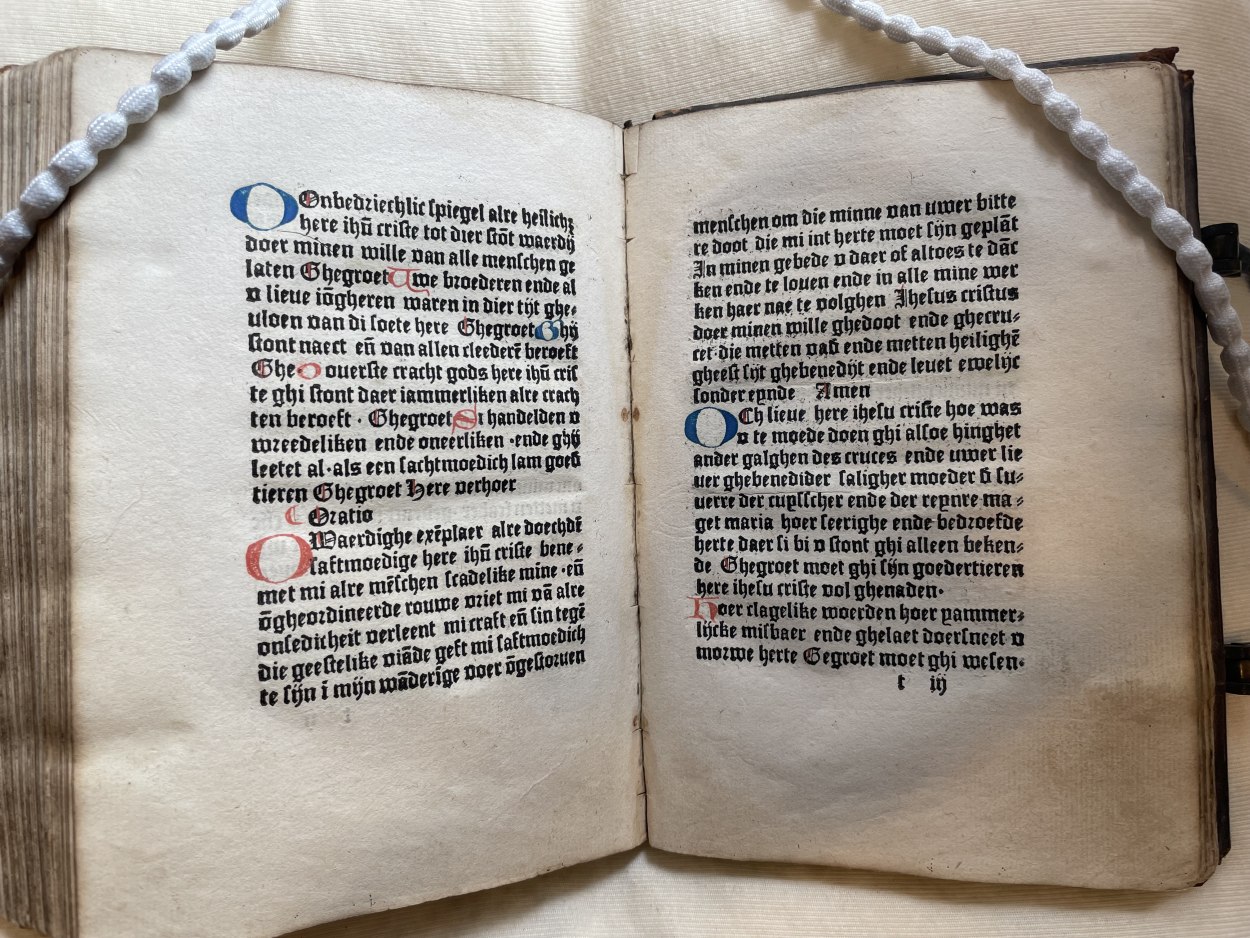 O Onbedriechlic spiegel alre heilichz
here ihū criste tot dier stōt waerdij
doer minen wille van alle menschen ge
laten Ghegroet Uwe broederen ende al
v lieue iōgheren waren in dier tijt ghe-
uloen van di soete here Ghegroet Ghij
stont naect eñ van allen cleederē beroeft
Ghe O ouerste cracht gods here ihū cris
te ghi stont daer iammerliken alre crach
ten beroeft · Ghegroet Si handelden v
wreedeliken ende oneerliken ·ende ghij
leetet al·als een sachtmoedich lam goed
tieren Ghegroet Here verhoer
Oratio
O Waerdighe exēplaer alre doechdē
saftmoedige here ihū criste bene-
met mi alre mēschen scadelike mine ·eñ
ōgheordineerde rouwe vriet mi vā alre
onsedicheit verleent mi craft eñ sin tegē
die geestelike viāde geft mi saftmoedich
te sijn ī mijn wāderīge voer ōgestoruen
menschen om die minne van uwer bitte
re doot die mi int herte moet sijn geplāt
In minen gebede v daer of altoes te dāc
ken ende te louen ende in alle mine wer
ken haer nae te volghen Jhesus cristus
doer minen wille ghedoot ende ghecru-
cet·die metten vad ende metten heilighē
gheest sijt ghebenedijt ende leuet ewelijc
sonder eynde Amen
OCh lieue here ihesu criste hoe was
v te moede doen ghi alsoe hinghet
ander galghen des cruces ende uwer lie
uer ghebenedider saligher moeder d su-
uerre der cuysscher ende der reynre ma-
get maria hoer seerighe ende bedroefde
herte daer si bi v stont ghi alleen beken-
de Ghegroet moet ghi sijn goedertieren
here ihesu criste vol ghenaden·
Hoer clagelike woerden hoer yammer-
lijcke misbaer ende ghelaet doersneet v
morwe herte Gegroet moet ghi wesen·
t iij